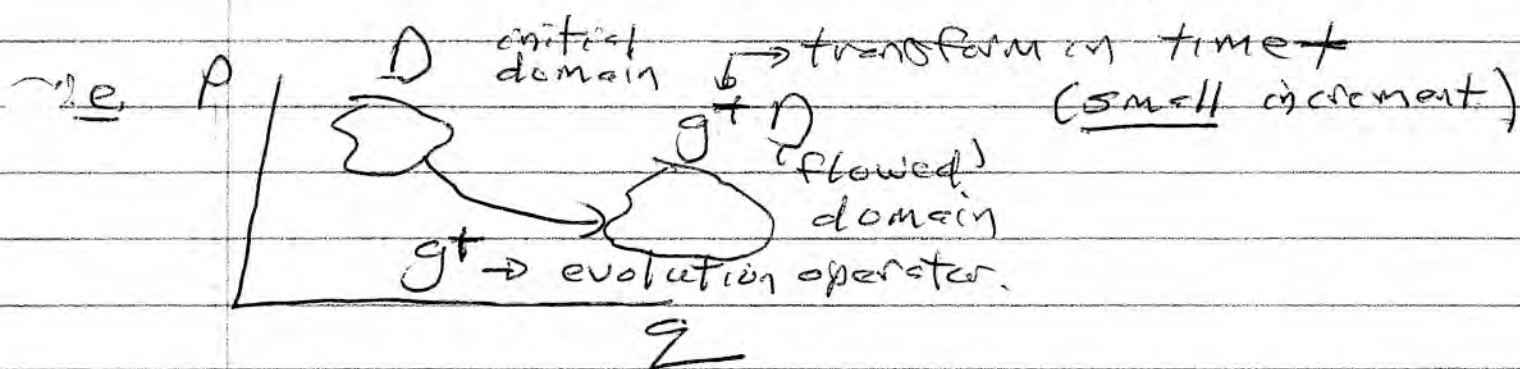 D initial
domain → transform in time t
i.e. P (small increment)
g^t D
"flowed"
domain
g^t → evolution operator.
q